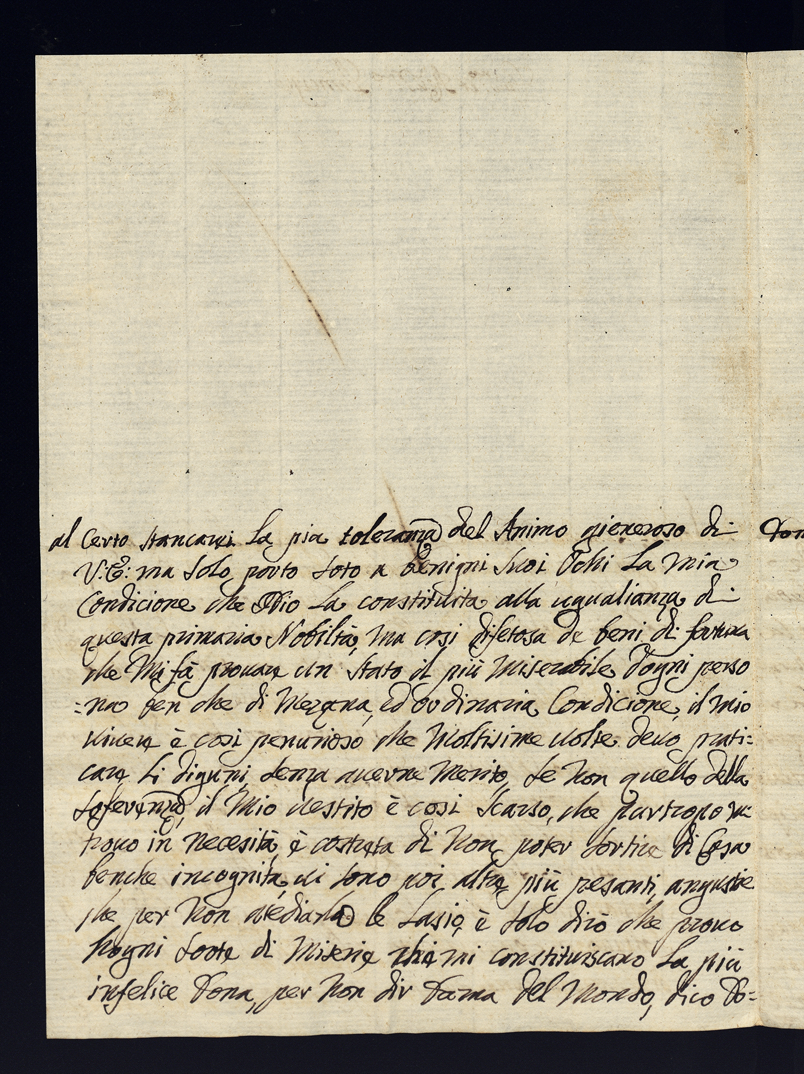 al certo stancarei la pia toleranza del Animo gieneroso di Don
V: E: ma solo porto soto a benigni suoi Ochi la mia
Condicione che Dio la constituita alla ugualianza di
questa primaria Nobiltà, ma cosi difetosa de beni di fortuna
che Mi fà provare un stato il più Miserabile d'ogni perso
=na ben che di Mezana, ed ordinaria Condicione, il mio
vivere è cosi penurioso che Moltisime volte devo prati=
care li digiuni senza averne Merito, se Non quello della
soferenza, il Mio vestito è cosi scarso, che purtropo mi
trovo in Necesità è costreta di Non poter sortire di Casa
benche incognita, vi sono poi altre più pesanti, angustie
che per Non atediarla le lasio è solo dirò che provo
hogni sorte di Miserie che mi constituiscano la più
infelice Dona, per Non dir Dama del Mondo, dico Do=